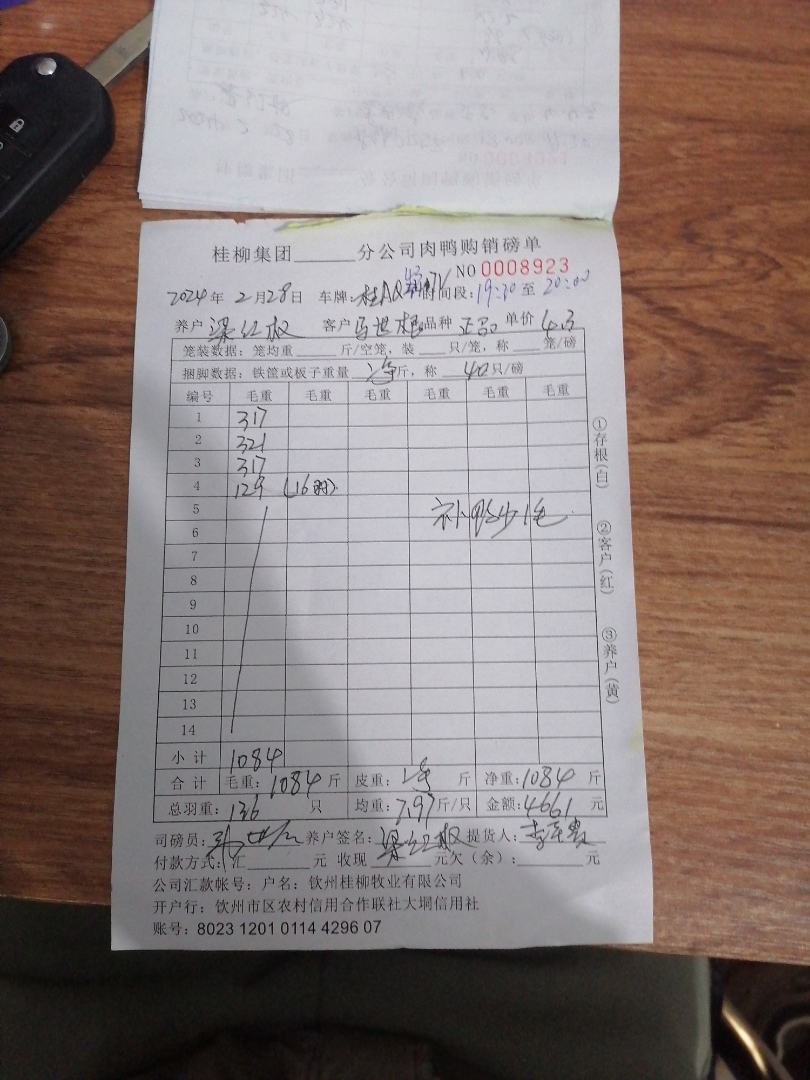 桂柳集团______分公司肉鸭购销磅单
NO 0008923
2024年 2月28日 车牌: 桂A 时间段: 19:30 至 20:00
养户 梁红权 客户 马世根 品种 单价 4.3
笼装数据: 笼均重______斤/空笼, 装____只/笼, 称____笼/磅
捆脚数据: 铁筐或板子重量 净 斤, 称 40 只/磅
编号 毛重 毛重 毛重 毛重 毛重 毛重
1 317
2 321
3 317
4 129 (16只)
5
补 少 毛
6
7
8
9
10
11
12
13
14
小计 1084
合计 毛重: 1084 斤 皮重: 净 斤 净重: 1084 斤
总羽重: 136 只 均重: 7.97 斤/只 金额: 4661 元
司磅员: 养户签名: 梁红权 提货人:
付款方式: 汇______元 收现______元欠(余): ______元
公司汇款帐号: 户名: 钦州桂柳牧业有限公司
开户行: 钦州市区农村信用合作联社大垌信用社
账号: 8023 1201 0114 4296 07
①存根(白) ②客户(红) ③养户(黄)